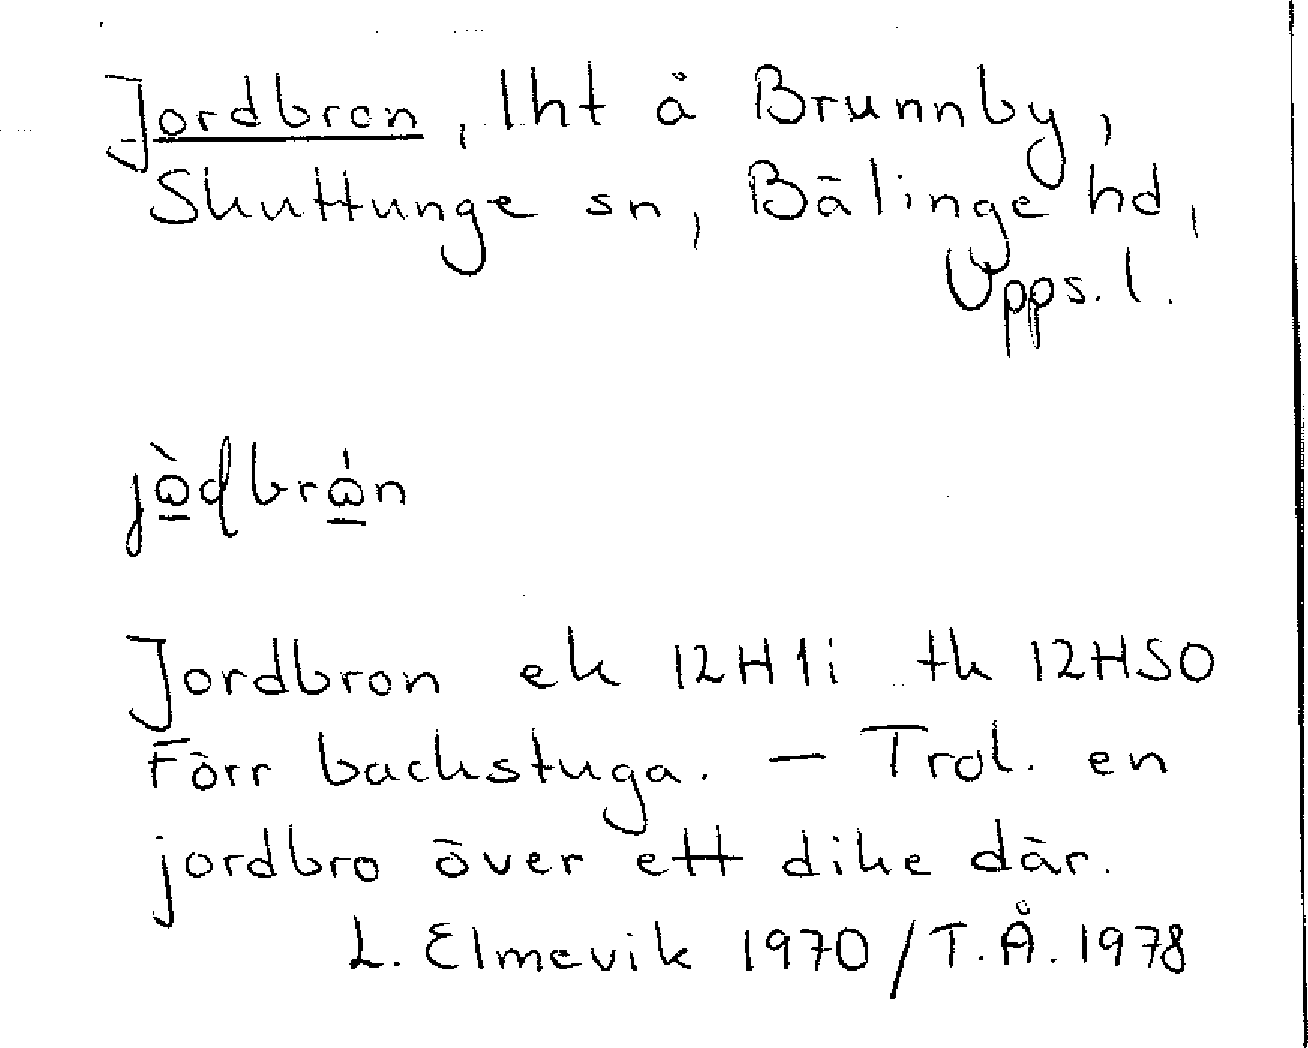 Jordbron, lht å Brunnby,
Skuttunge sn, Bälinge hd,
Upps. l.
Jordbron ek 12H1i tk 12HSO
Förr backstuga. – Trol. en
jordbro över ett dike där.
L. Elmevik 1970/T.Å. 1978